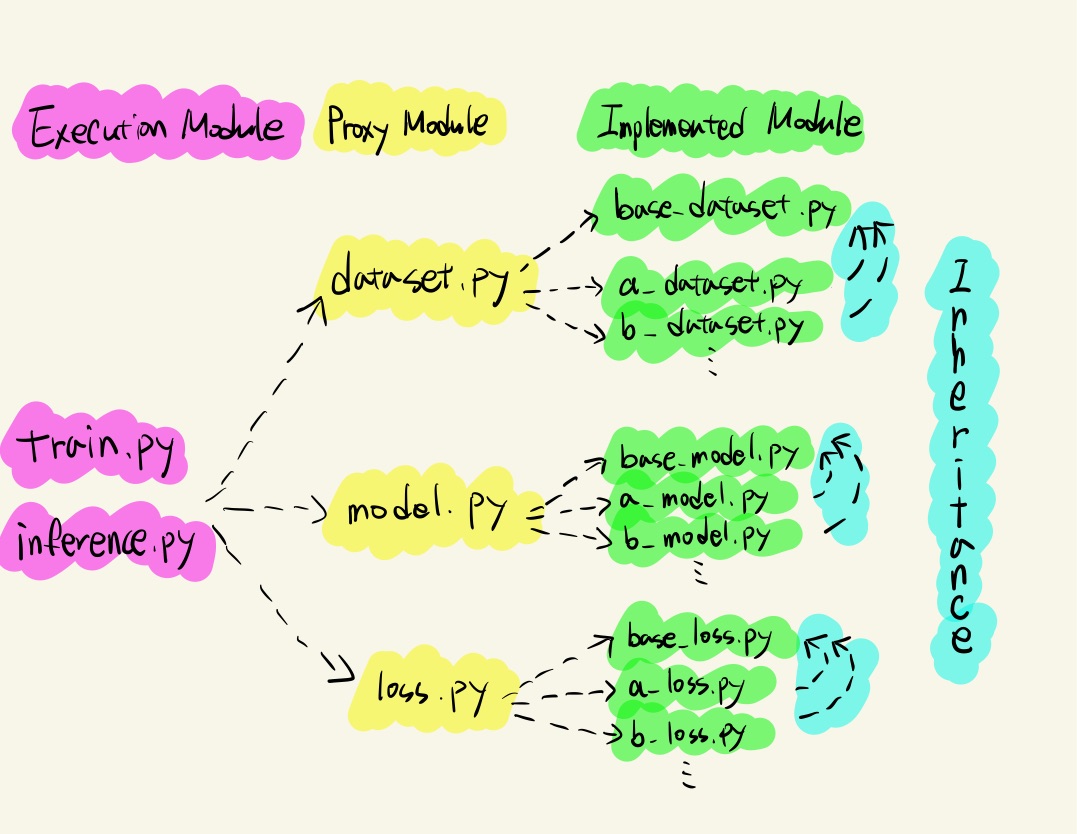 Execution Module
Proxy Module
Implemented Module
train.py
inference.py
dataset.py
base_dataset.py
a_dataset.py
b_dataset.py
model.py
base_model.py
a_model.py
b_model.py
loss.py
base_loss.py
a_loss.py
b_loss.py
Inheritance